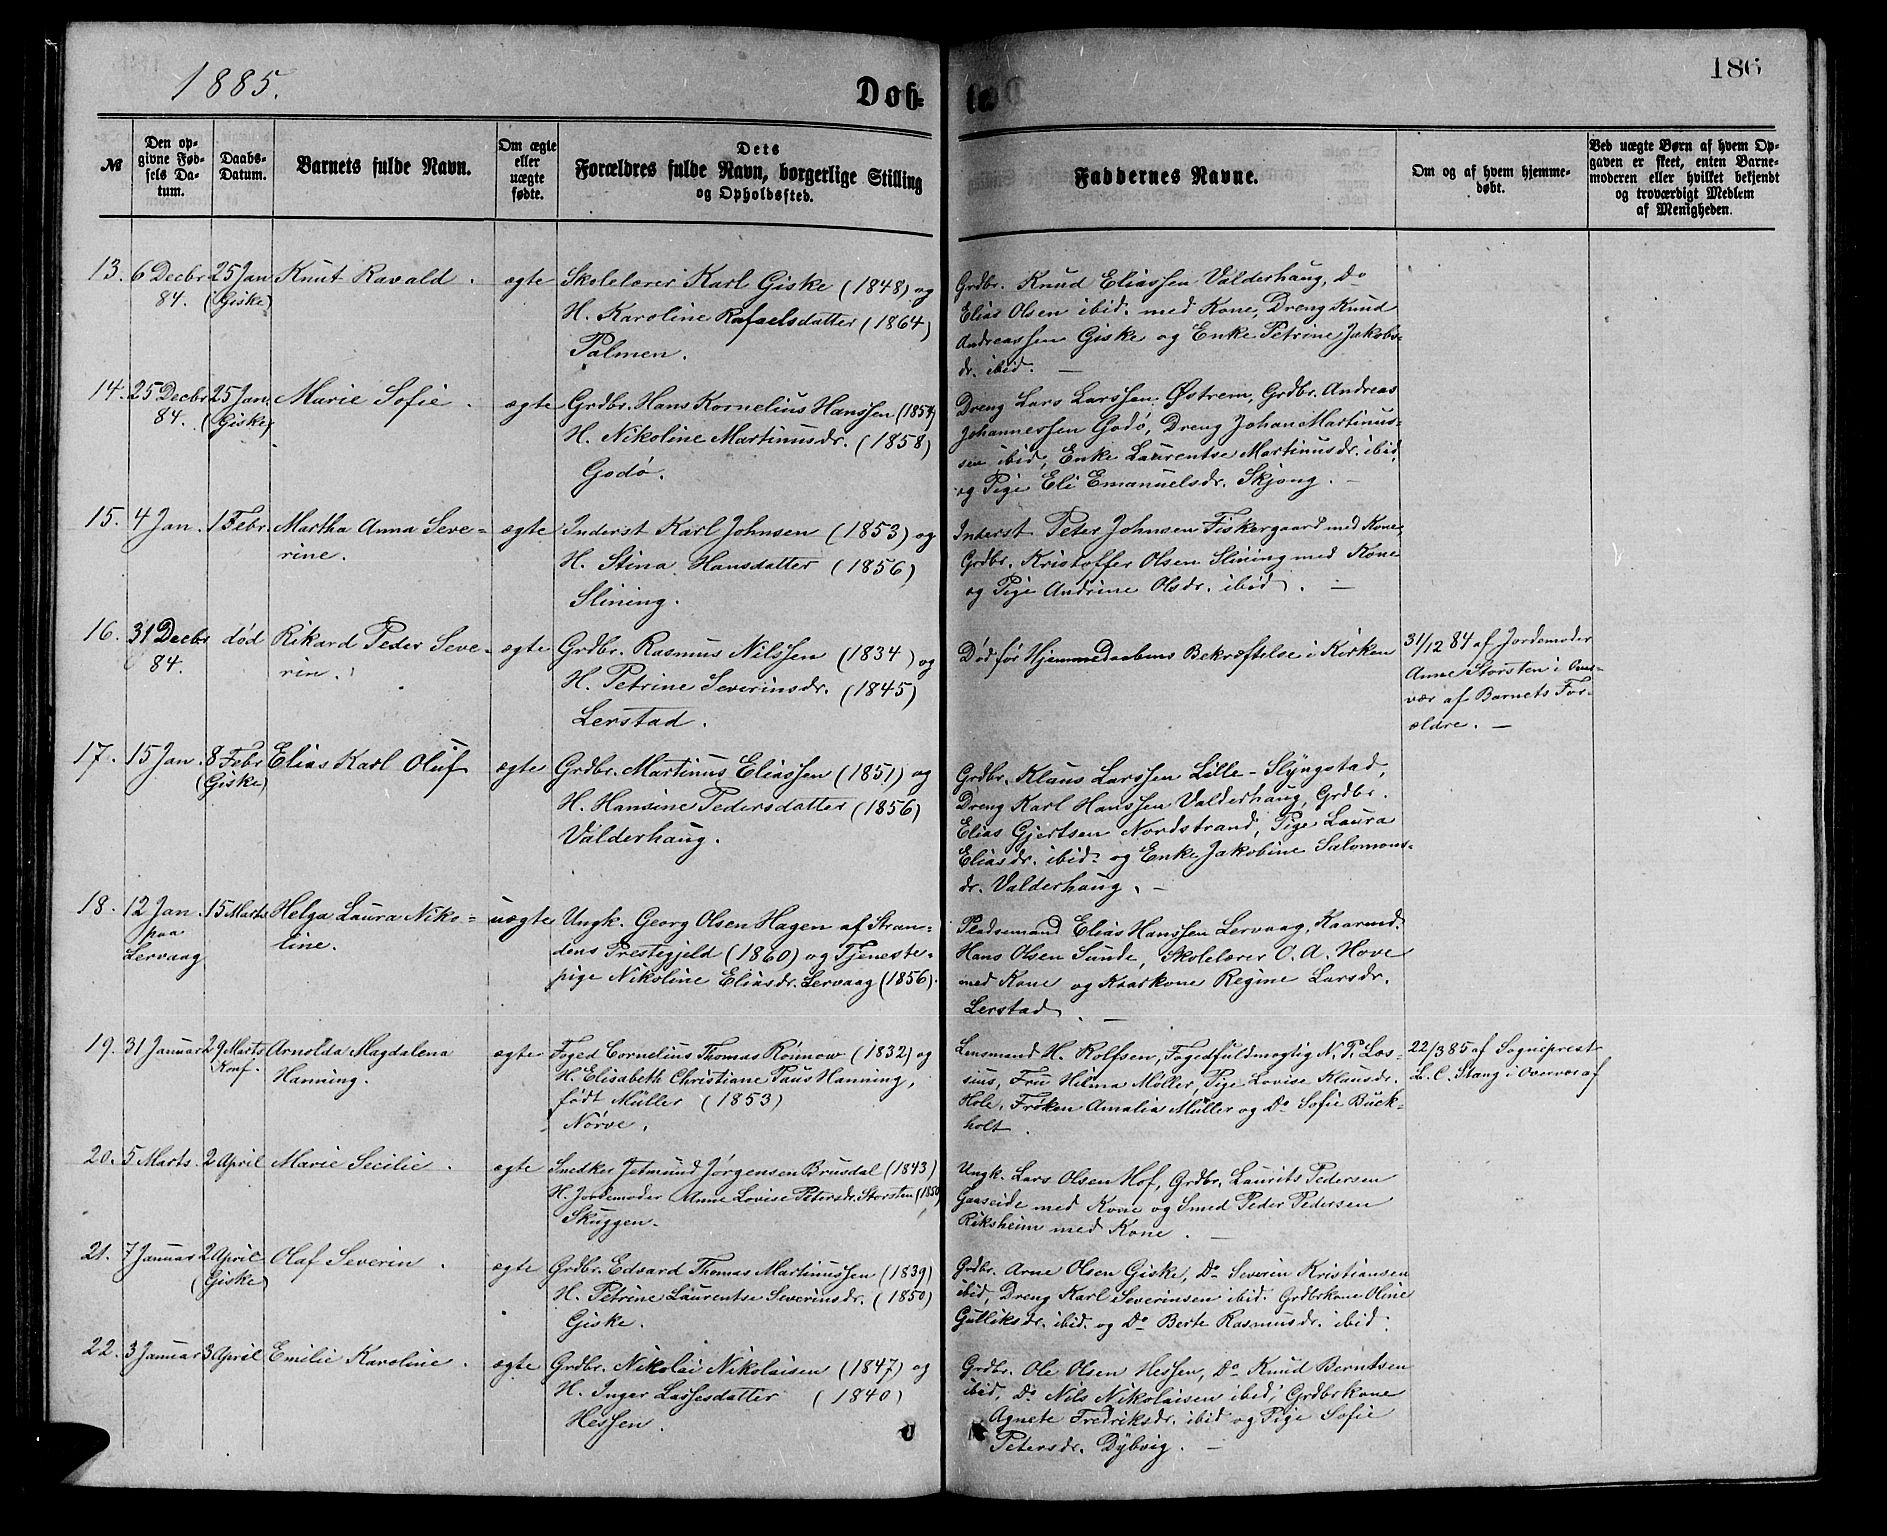 1885.
Døb-
te
186
№
Den op-
givne Fød-
sels Da-
tum.
Daabs-
Datum.
Barnets fulde Navn.
Om ægte
eller
uægte
fødte.
Dets
Forældres fulde Navn, borgerlige Stilling
og Opholdssted.
Faddernes Navne.
Om og af hvem hjemme-
døbt.
Ved uægte Børn af hvem Op-
gaven er skeet, enten Barne-
moderen eller hvilket bekjendt
og troværdigt Medlem
af Menigheden.
13. 6 Decbr 25 Jan Knut Ravald. ægte Skolelærer Karl Giske (1848) og
84. (Giske) H. Karoline Rafaelsdatter (1864)
Palmen.
Grdbr. Knud Eliassen Valderhaug, Do
Elias Olsen ibid. med Kone, Dreng Knud
Andreassen Giske og Enke Petrine Jakobs-
dr. ibid. —
14. 25 Decbr 25 Jan Marie Sofie. ægte Grdbr. Hans Kornelius Hanssen
84. (Giske) H. Nikoline Martinusdr. (1858)
Godø.
Dreng Lars Larssen Østrem, Grdbr. Andreas
Johannessen Godø, Dreng Johan Martinus-
sen ibid, Enke Laurentse Martinusdr. ibid,
og Pige Eli Emanuelsdr. Skjong. —
15. 4 Jan. 1 Febr. Martha Anna Seve- ægte Inderst Karl Johnsen (1853) og
rine. H. Stina Hansdatter (1856)
Slining.
Inderst Peter Johnsen Fiskergaard med Kone,
Grdbr. Kristoffer Olsen Slining med Kone
og Pige Andrine Olsdr. ibid. —
16. 31 Decbr død Rikard Peder Seve- ægte Grdbr. Rasmus Nilssen (1834) og
84. rin. H. Petrine Severinsdr. (1845)
Lerstad.
Død før Hjemmedaabens Bekræftelse i Kirken
31/12 84 af Jordemoder
Anne Storsten i Over-
vær af Barnets For-
ældre. —
17. 15 Jan. 8 Febr Elias Karl Oluf ægte Grdbr. Martinus Eliassen (1851) og
(Giske) H. Hansine Pedersdatter (1856)
Valderhaug.
Grdbr. Klaus Larssen Lille-Slyngstad,
Dreng Karl Hanssen Valderhaug, Grdbr.
Elias Gjertsen Nordstrand, Pige Laura
Eliasdr. ibid. og Enke Jakobine Salomons-
dr. Valderhaug. —
18. 12 Jan. 15 Marts Helga Laura Niko- uægte Ungk. Georg Olsen Hagen af Stran-
paa line. dens Prestegjeld (1860) og Tjeneste-
Lervaag pige Nikoline Eliasdr. Lervaag (1856).
Pladsemand Elias Hanssen Lervaag, Kaarmd.
Hans Olsen Sunde, Skolelærer O. A. Hove
med Kone og Kaarkone Regine Larsdr.
Lerstad. —
19. 31 Januar 29 Marts Arnolda Magdalena ægte Foged Cornelius Thomas Rönnow (1832) og
Konf. Hanning. H. Elisabeth Christiane Paus Hanning,
født Müller (1853)
Nørve.
Lensmand H. Rolfsen, Fogedfuldmægtig N. P. Las-
sius, Fru Hilma Müller, Pige Lovise Klausdr.
Hole, Frøken Amalia Müller og Do Sofie Buck-
holt.
22/3 85 af Sogneprest
L. C. Stang i Overvær af
20. 5 Marts. 2 April Marie Secilie. ægte Snedker Jetmund Jørgensen Brusdal (1843)
H. Jordemoder Anne Lovise Petersdr. Storsten
Skuggen.
Ungk. Lars Olsen Hof, Grdbr. Laurits Pedersen
Gaaseide med Kone og Smed Peder Pedersen
Riksheim med Kone. —
21. 7 Januar 2 April Olaf Severin. ægte Grdbr. Edvard Thomas Martinussen (1839)
(Giske) H. Petrine Laurentse Severinsdr. (1850)
Giske.
Grdbr. Arne Olsen Giske, Do Severin Kristiansen
ibid, Dreng Karl Severinsen ibid. Grdbrkone Oline
Gulliksdr. ibid. og Do Berte Rasmusdr. ibid.
22. 3 Januar 3 April Emilie Karoline. ægte Grdbr. Nikolai Nikolaisen (1847) og
H. Inger Lassesdatter (1840)
Hessen.
Grdbr. Ole Olsen Hessen, Do Knud Berntsen
ibid, Do Nils Nikolaisen ibid, Grdbrkone
Agnete Fredriksdr. ibid og Pige Sofie
Petersdr. Dybvig. —